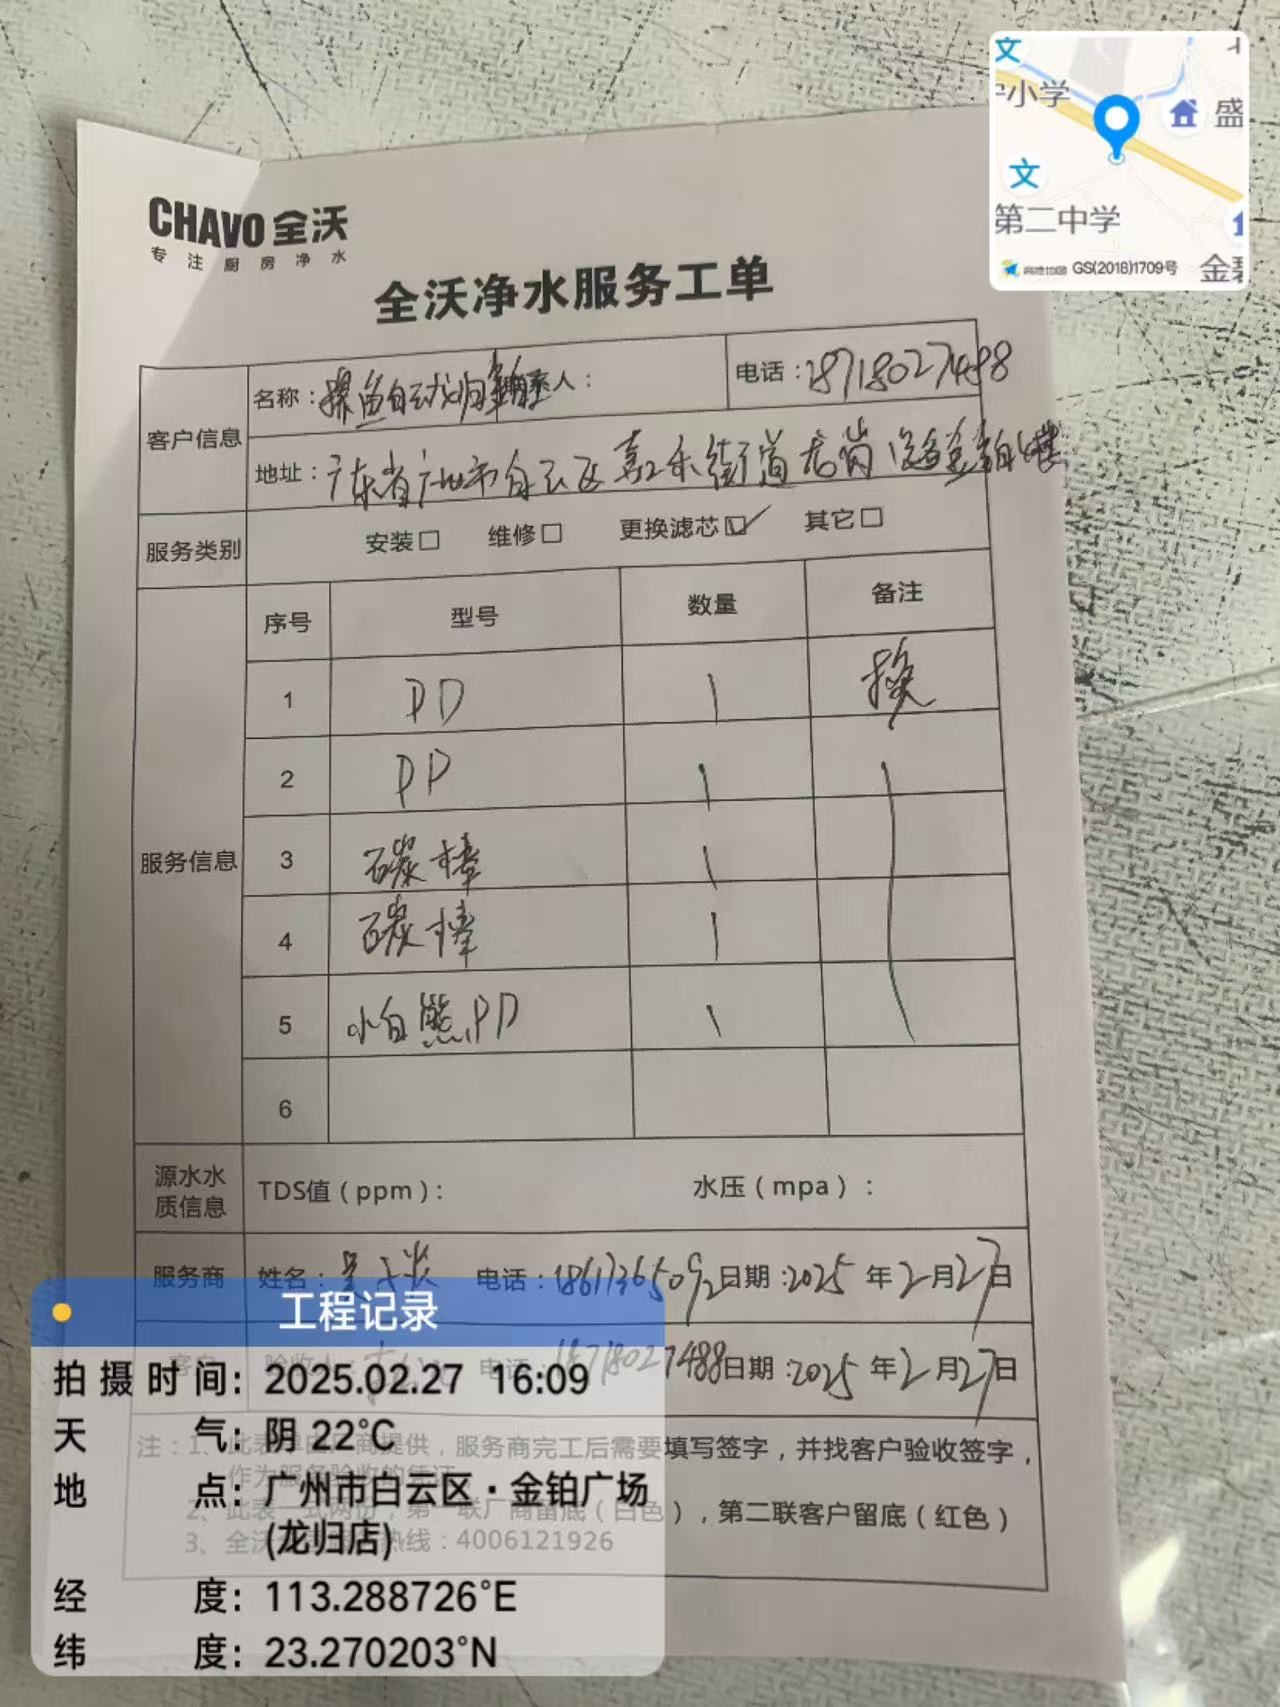 文
宁小学
盛
文
第二中学
高德地图 GS(2018)1709号
金碧
CHAVO 全沃
专注厨房净水
全沃净水服务工单
客户信息
名称：探鱼白云龙归金铂 联系人： 电话：18718027488
地址：广东省广州市白云区嘉禾街道龙岗路金铂
服务类别 安装□ 维修□ 更换滤芯☑ 其它□
服务信息
序号 型号 数量 备注
1 PP 1 换
2 PP 1
3 碳棒 1
4 碳棒 1
5 小白熊PP 1
6
源水水质信息 TDS值（ppm）： 水压（mpa）：
服务商 姓名： 电话：18617365092 日期：2025年2月27日
客户 验收人： 电话：18718027488 日期：2025年2月27日
注：1、此表单由厂商提供，服务商完工后需要填写签字，并找客户验收签字，
作为服务验收的凭证
2、此表一式两份，第一联厂商留底（白色），第二联客户留底（红色）
3、全沃 热线：4006121926
工程记录
拍摄时间：2025.02.27 16:09
天气：阴 22°C
地点：广州市白云区·金铂广场
(龙归店)
经度：113.288726°E
纬度：23.270203°N